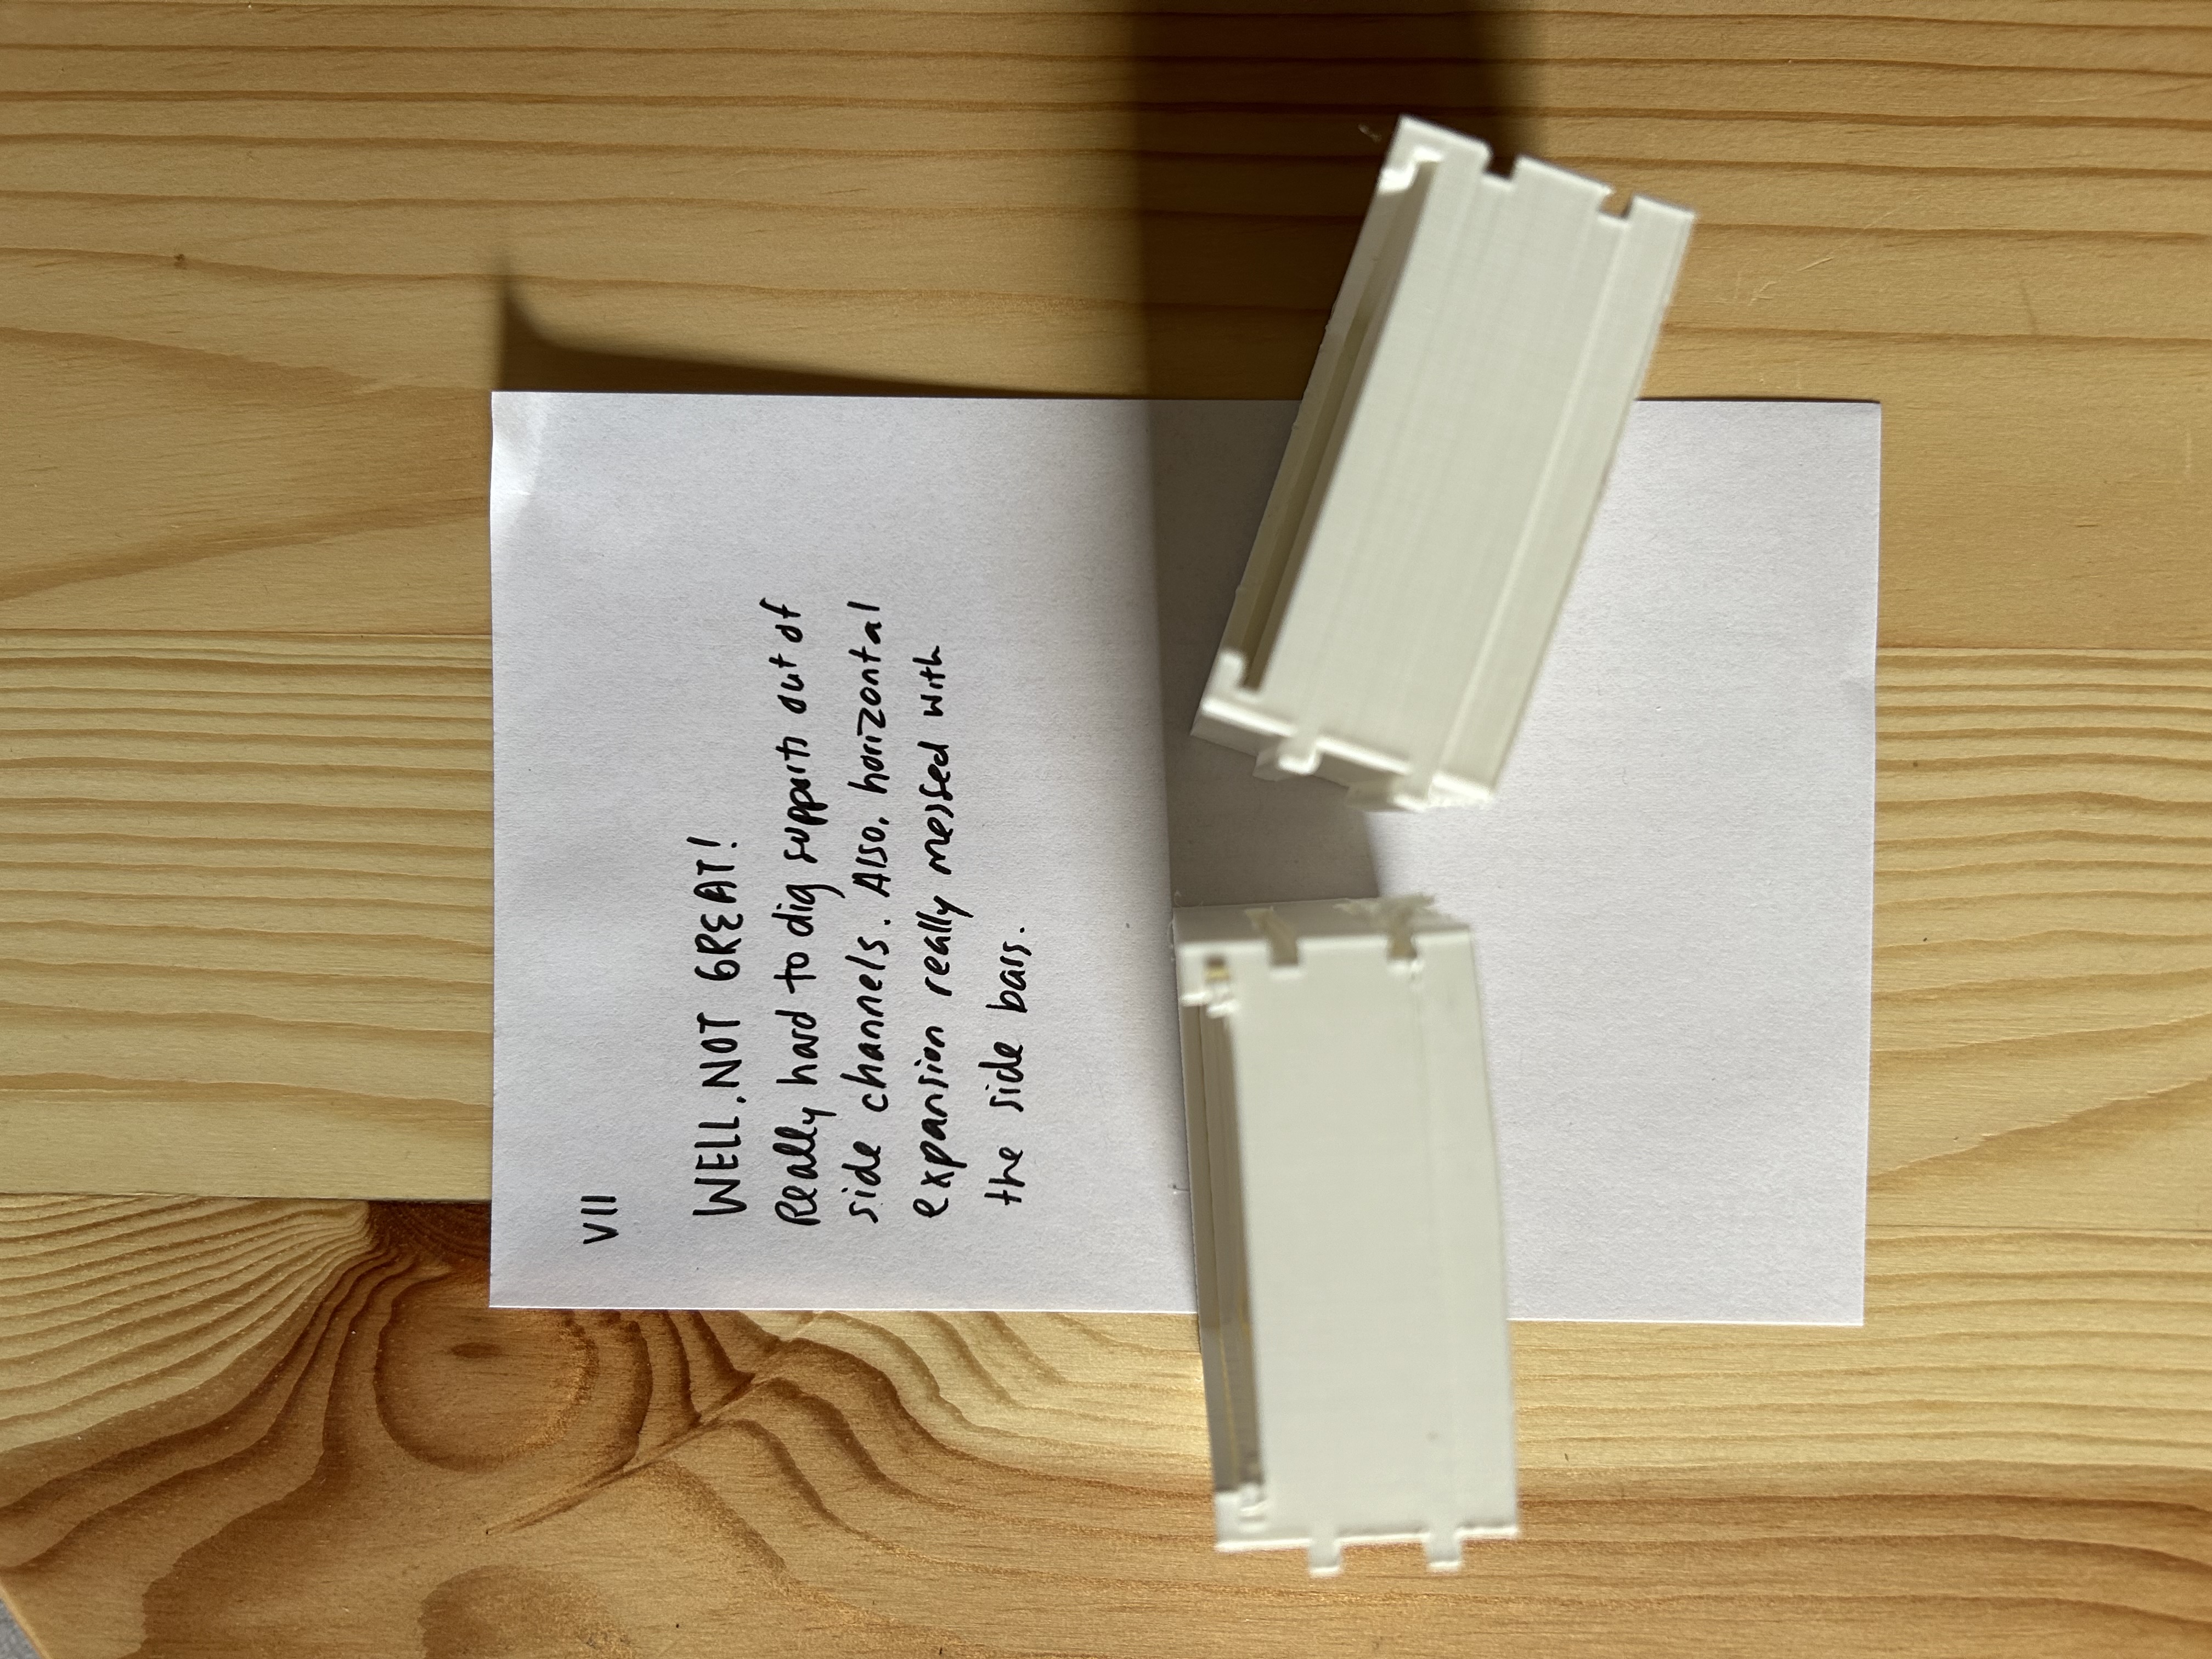 VII
WELL, NOT GREAT!
Really hard to dig supports out of
side channels. Also, horizontal
expansion really messed with
the side bars.